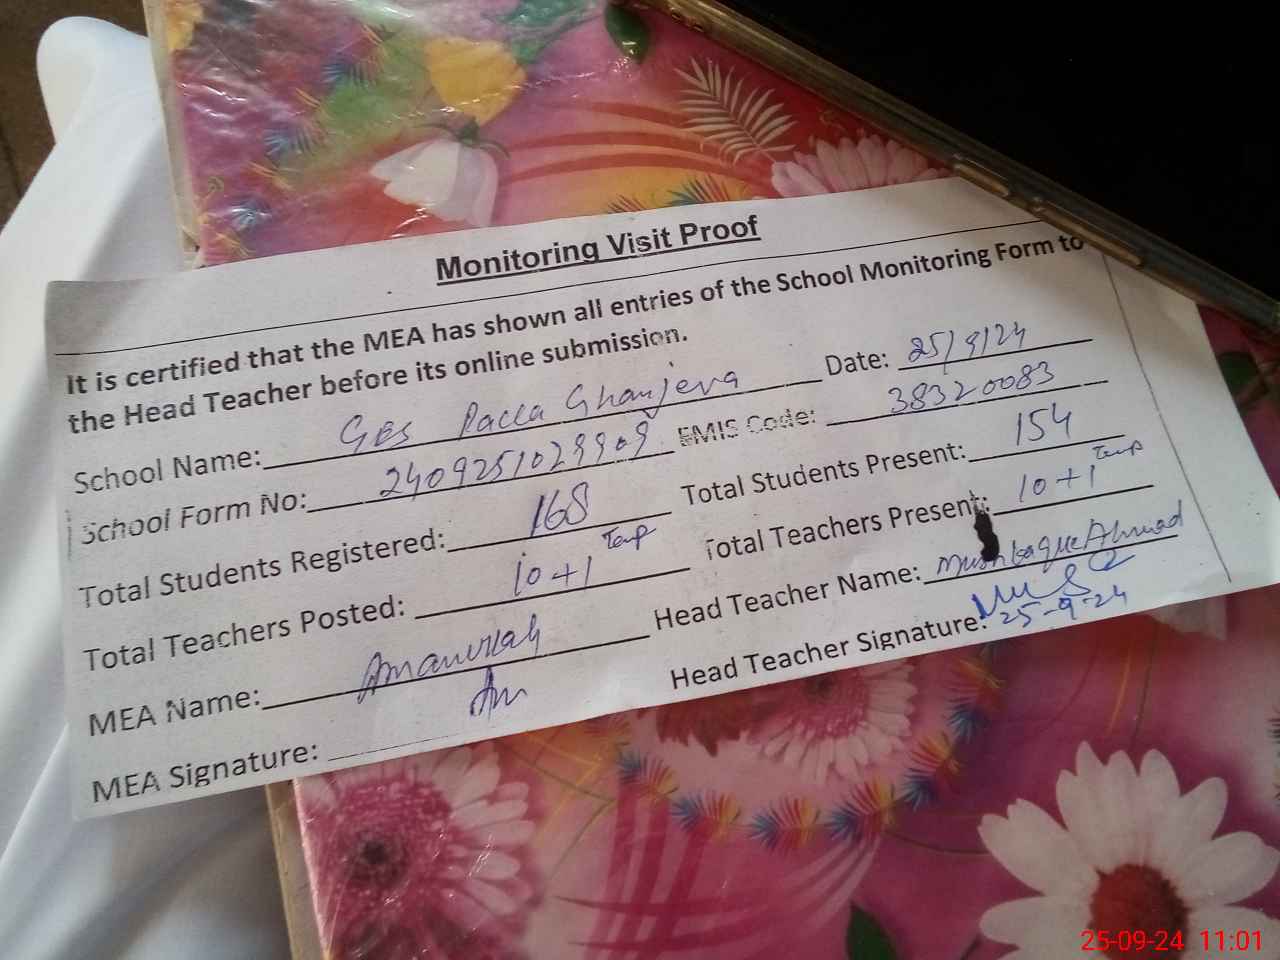 Monitoring Visit Proof
It is certified that the MEA has shown all entries of the School Monitoring Form to
the Head Teacher before its online submission.
School Name: GES Pacca Ghanjera Date: 25/9/24
School Form No: 2409251029909 EMIS Code: 38320083
Total Students Registered: 168 Total Students Present: 154
Total Teachers Posted: 10+1 Temp Total Teachers Present: 10+1 Temp
MEA Name: Amanullah Head Teacher Name: Mushtaque Ahmad
MEA Signature: Head Teacher Signature:
25-9-24
25-09-24 11:01